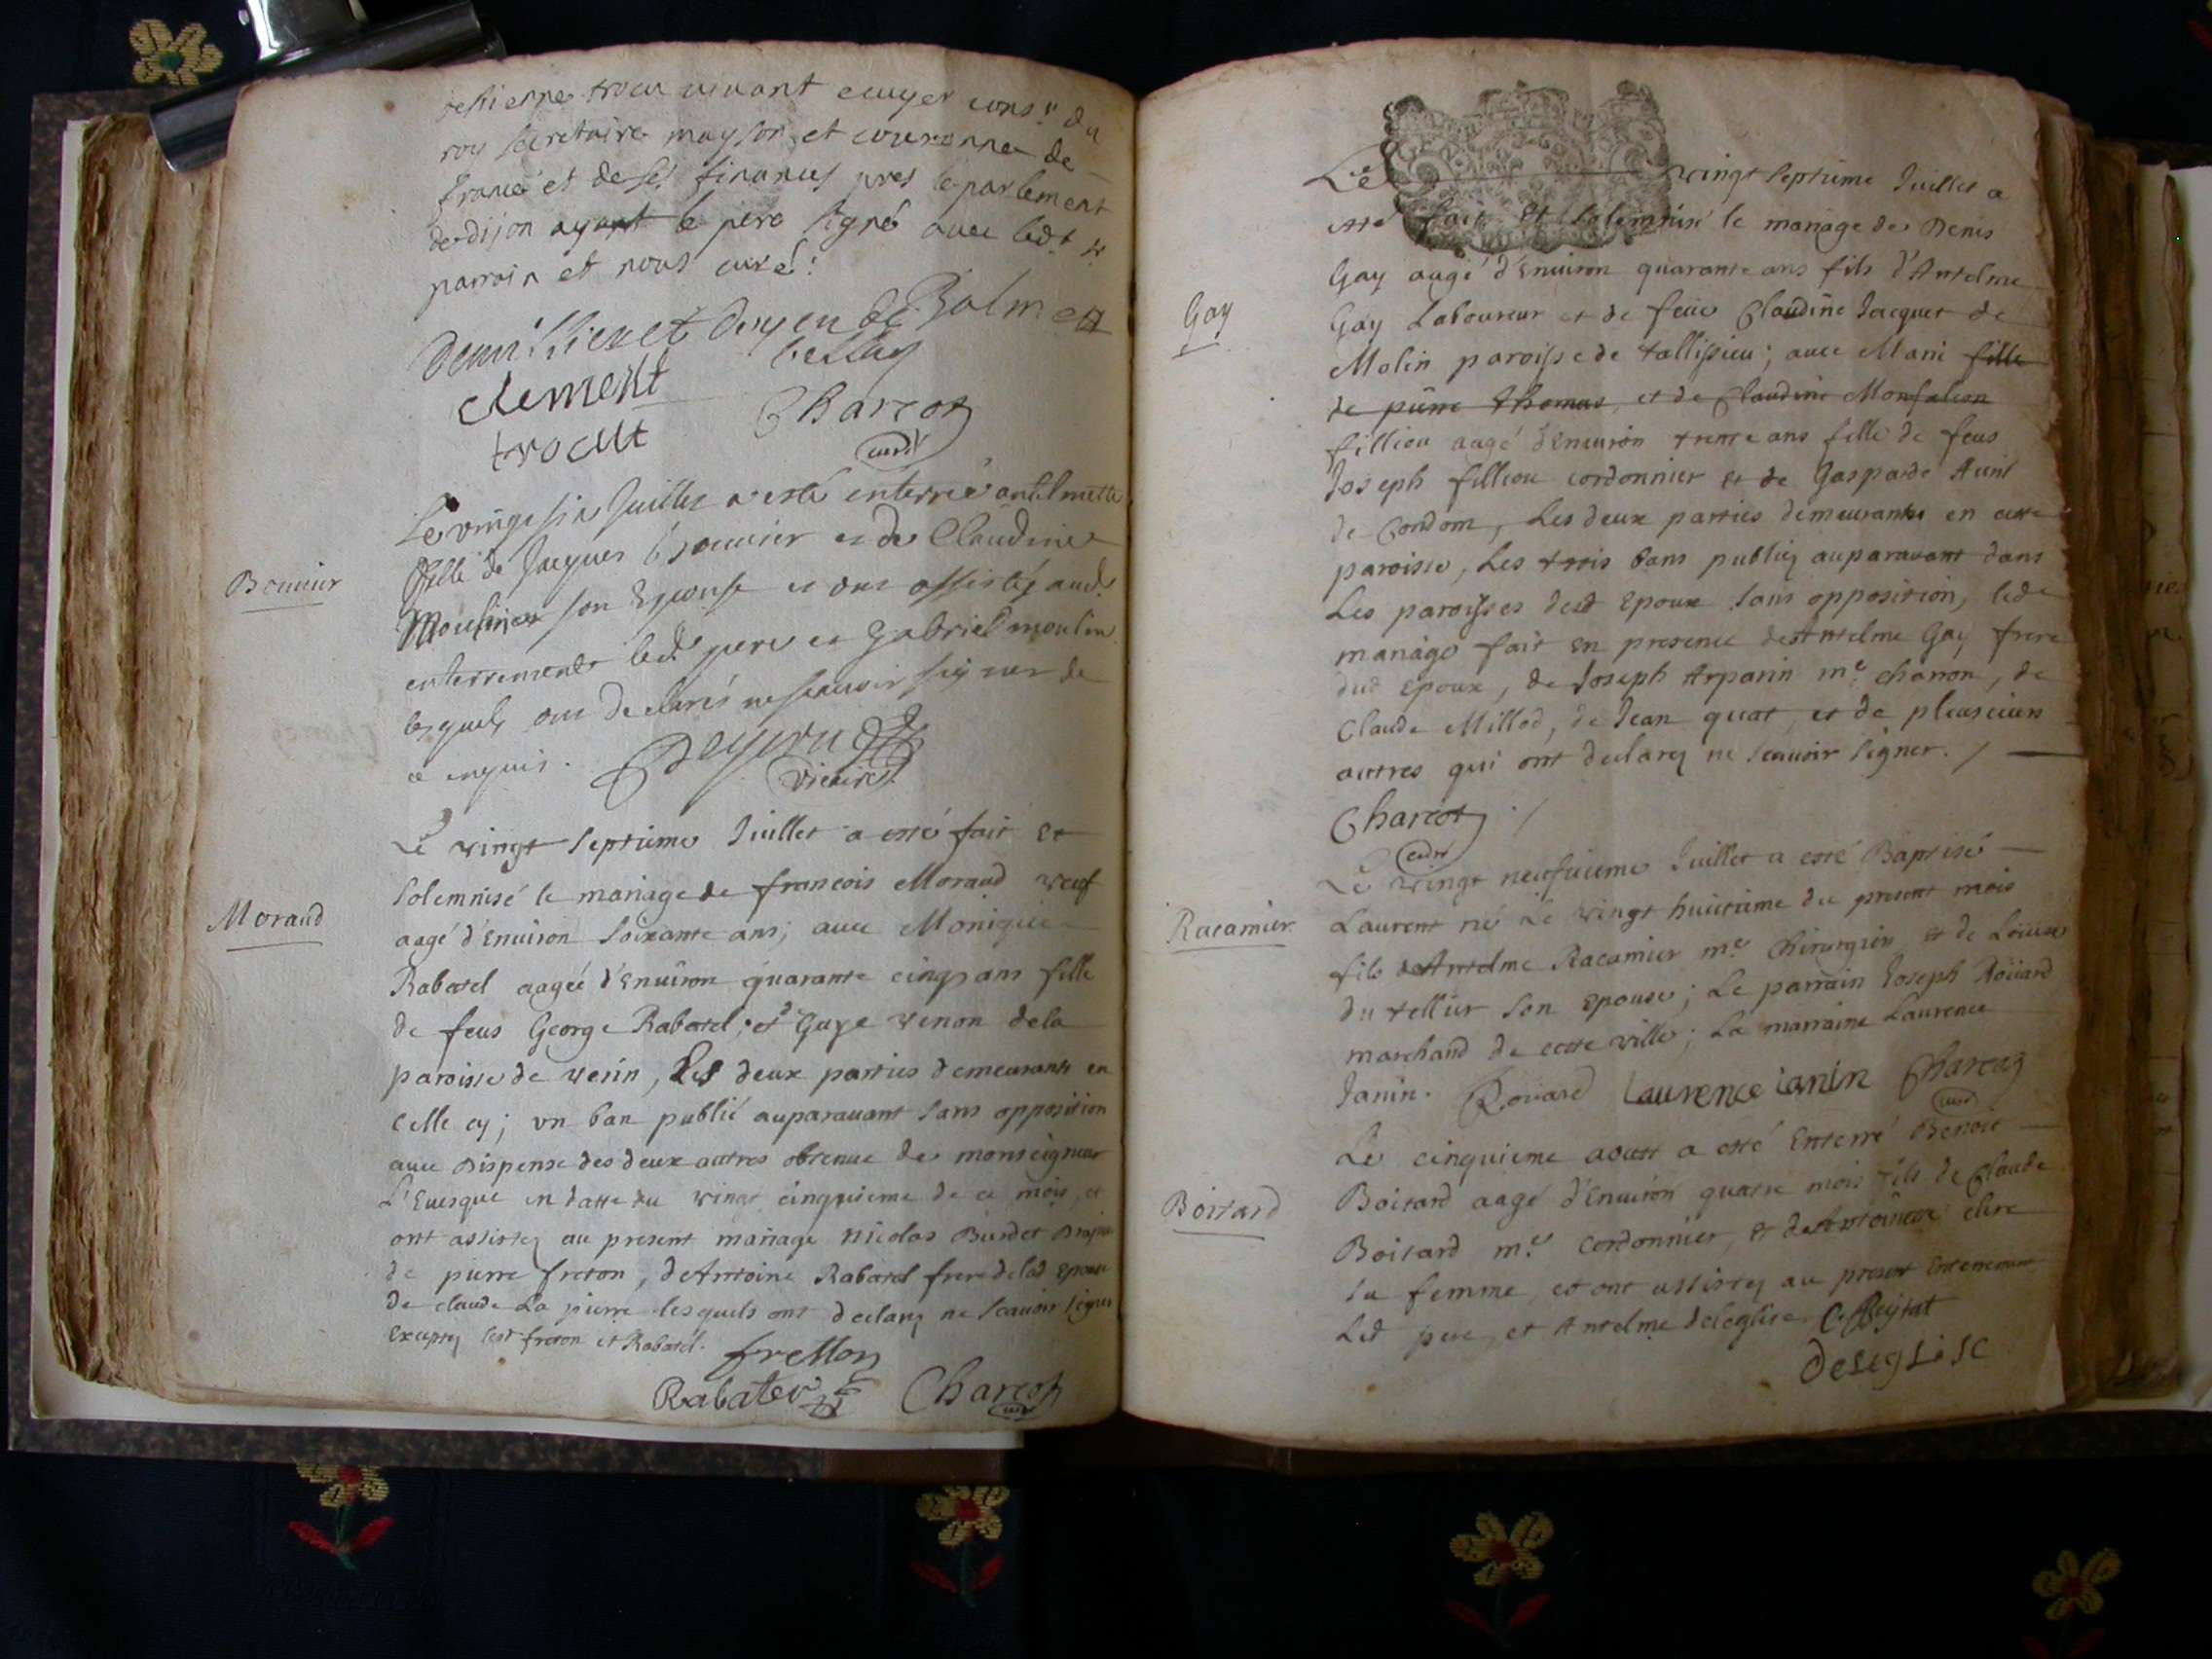 trocu vivant ecuyer cons.r du
roy secretaire mayson et couronne de
france et de ses finances pres le parlement
de dijon ayant le pere signé avec led.t sr
parrain et nous curé.
de Balme
clement
trocut
Charcot
curé
Le vingt six Juillet a esté enterrée antelmette
fille de Jacques et de Claudine
Bonnier
son Epouse et ont assistéz aud.
enterrement led. pere et Gabriel moulin
lesquels ont declarés ne scavoir signer de
ce enquis.
vicaire
Le vingt septieme Juillet a esté fait et
solemnisé le mariage de francois Moraud veuf
Moraud
aagé d'Environ soixante ans; avec Monique
Rabatel aagée d'Environ quarante cinq ans fille
de feus George Rabatel, et Guye venon dela
paroisse de verin, Les deux parties demeurants en
celle cy; vn ban publié auparavant sans opposition
avec Dispense des deux autres obtenue de monseigneur
L'Euesque en datte du vingt cinquieme de ce mois, et
ont assistez au present mariage nicolas Burdet
de pierre freton, de Antoine Rabatel frere de lad epouse
de claude La pierre lesquels ont declarez ne scauoir signer
Exceptez lesd freton et Rabatel.
fretton
Rabatel
Charcot
curé
Le vingt septieme Juillet a
esté fait et solemnisé le mariage de Denis
Gay aagé d'Enuiron quarante ans fils d'Antelme
Gay
Gay Laboureur et de feue Claudine Jacquet de
Molin paroisse de tallissieu; avec Marie fille
de pierre Thomas, et de Claudine Monfalcon
filliou aagé d'Enuiron trente ans fille de feus
Joseph filliou cordonnier et de Gasparde Auril
de Condom, Les deux parties demeurantes en cette
paroisse, Les trois bans publiez auparavant dans
Les paroisses desd Epoux sans opposition, led
mariage fait en presence de Antelme Gay frere
dud Epoux, de Joseph Arparin m.e charron, de
Claude Millod, de Jean quat, et de pleusieurs
autres qui ont declarez ne scauoir signer. /
Charcot ./
curé
Le vingt neufuieme Juillet a esté Baptisé
Racamier
Laurent né Le vingt huictieme du present mois
fils de Antelme Racamier m.e Chirurgien et de Louise
du tellier son Epouse; Le parrain Joseph Roüard
marchand de cette ville; La marraine Laurence
Janin. Roüard Laurence ianin Charcot
curé
Le cinquieme aoust a esté Enterré Benoit
Boitard
Boitard aagé d'Enuiron quatre mois fils de Claude
Boitard m.e Cordonnier, et de Antoinette
sa femme, et ont assistez au present Enterrement
Led pere, et Antelme deleglise.
deleglise